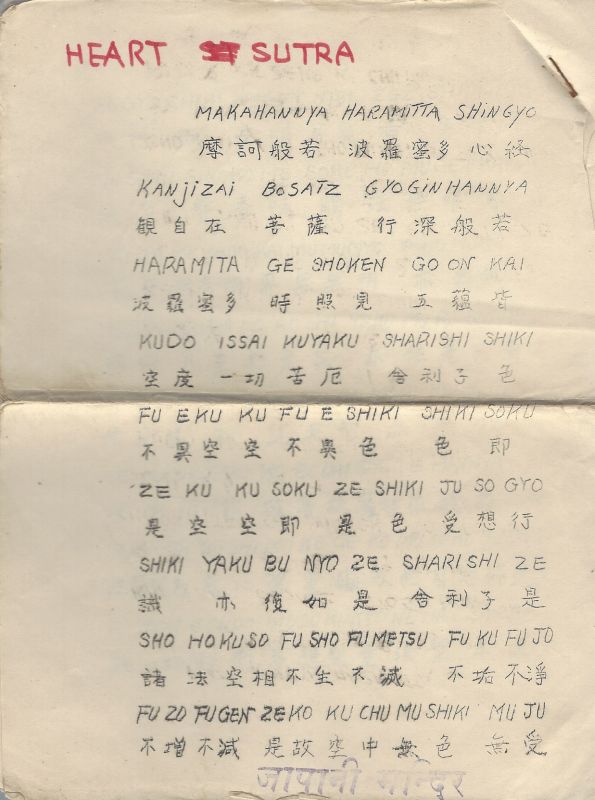 HEART SUTRA
MAKAHANNYA HARAMITTA SHINGYO
摩訶般若 波羅蜜多 心経
KANJIZAI BOSATZ GYOGINHANNYA
観自在 菩薩 行深般若
HARAMITA GE SHOKEN GO ON KAI
波羅蜜多 時照見 五蘊皆
KUDO ISSAI KUYAKU SHARISHI SHIKI
空度 一切苦厄 舍利子色
FU EKU KU FU E SHIKI SHIKI SOKU
不異空空不異色 色即
ZE KU KU SOKU ZE SHIKI JU SO GYO
是空空即是色受想行
SHIKI YAKU BU NYO ZE SHARISHI ZE
識 亦後如是舍利子是
SHO HOKUSO FU SHO FUMETSU FU KU FU JO
諸法空相不生不滅 不垢不淨
FU ZO FUGEN ZEKO KU CHU MU SHIKI MU JU
不增不減 是故空中無色 無受
जापानी मन्दिर